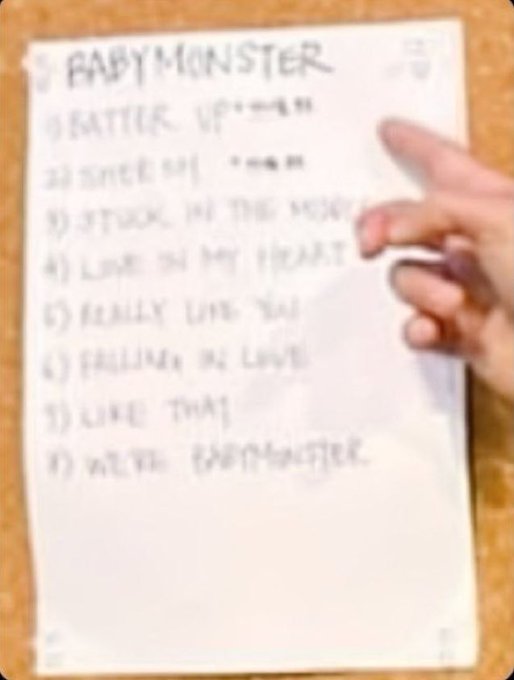 BABYMONSTER
1) BATTER UP
2) SHEESH
3) STUCK IN THE
4) LOVE IN MY HEART
5) REALLY LIKE YOU
6) FALLING IN LOVE
7) LIKE THAT
8) WE'RE BABYMONSTER